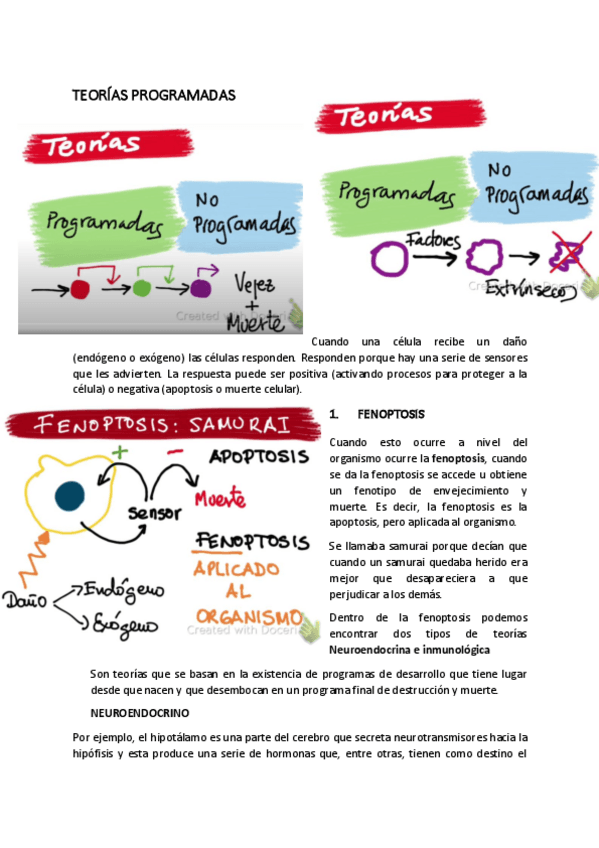 TEORÍAS PROGRAMADAS
Teorías
Programadas
No
Programadas
Vejez
+
Muerte
Created with Doceri
Teorías
Programadas
No
Programadas
Factores
Extrínsecos
Created with Doceri
Cuando una célula recibe un daño
(endógeno o exógeno) las células responden. Responden porque hay una serie de sensores
que les advierten. La respuesta puede ser positiva (activando procesos para proteger a la
célula) o negativa (apoptosis o muerte celular).
FENOPTOSIS: SAMURAI
+
-
APOPTOSIS
Sensor
Muerte
FENOPTOSIS
APLICADO
AL
ORGANISMO
Daño
Endógeno
Exógeno
Created with Doceri
1. FENOPTOSIS
Cuando esto ocurre a nivel del
organismo ocurre la fenoptosis, cuando
se da la fenoptosis se accede u obtiene
un fenotipo de envejecimiento y
muerte. Es decir, la fenoptosis es la
apoptosis, pero aplicada al organismo.
Se llamaba samurai porque decían que
cuando un samurai quedaba herido era
mejor que desapareciera a que
perjudicar a los demás.
Dentro de la fenoptosis podemos
encontrar dos tipos de teorías
Neuroendocrina e inmunológica
Son teorías que se basan en la existencia de programas de desarrollo que tiene lugar
desde que nacen y que desembocan en un programa final de destrucción y muerte.
NEUROENDOCRINO
Por ejemplo, el hipotálamo es una parte del cerebro que secreta neurotransmisores hacia la
hipófisis y esta produce una serie de hormonas que, entre otras, tienen como destino el